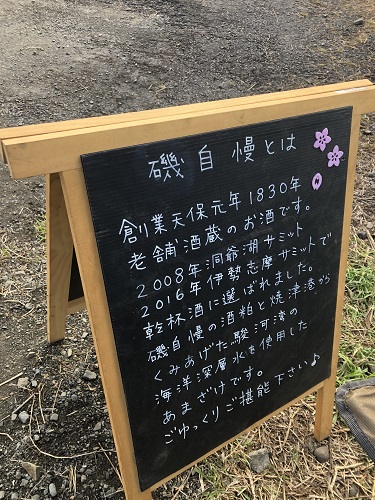 磯自慢とは
創業天保元年1830年
老舗酒蔵のお酒です。
2008年洞爺湖サミット
2016年伊勢志摩サミットで
乾杯酒に選ばれました。
磯自慢の酒粕と焼津港から
くみあげた駿河湾の
海洋深層水を使用した
あまざけです。
ごゆっくりご堪能下さい♪